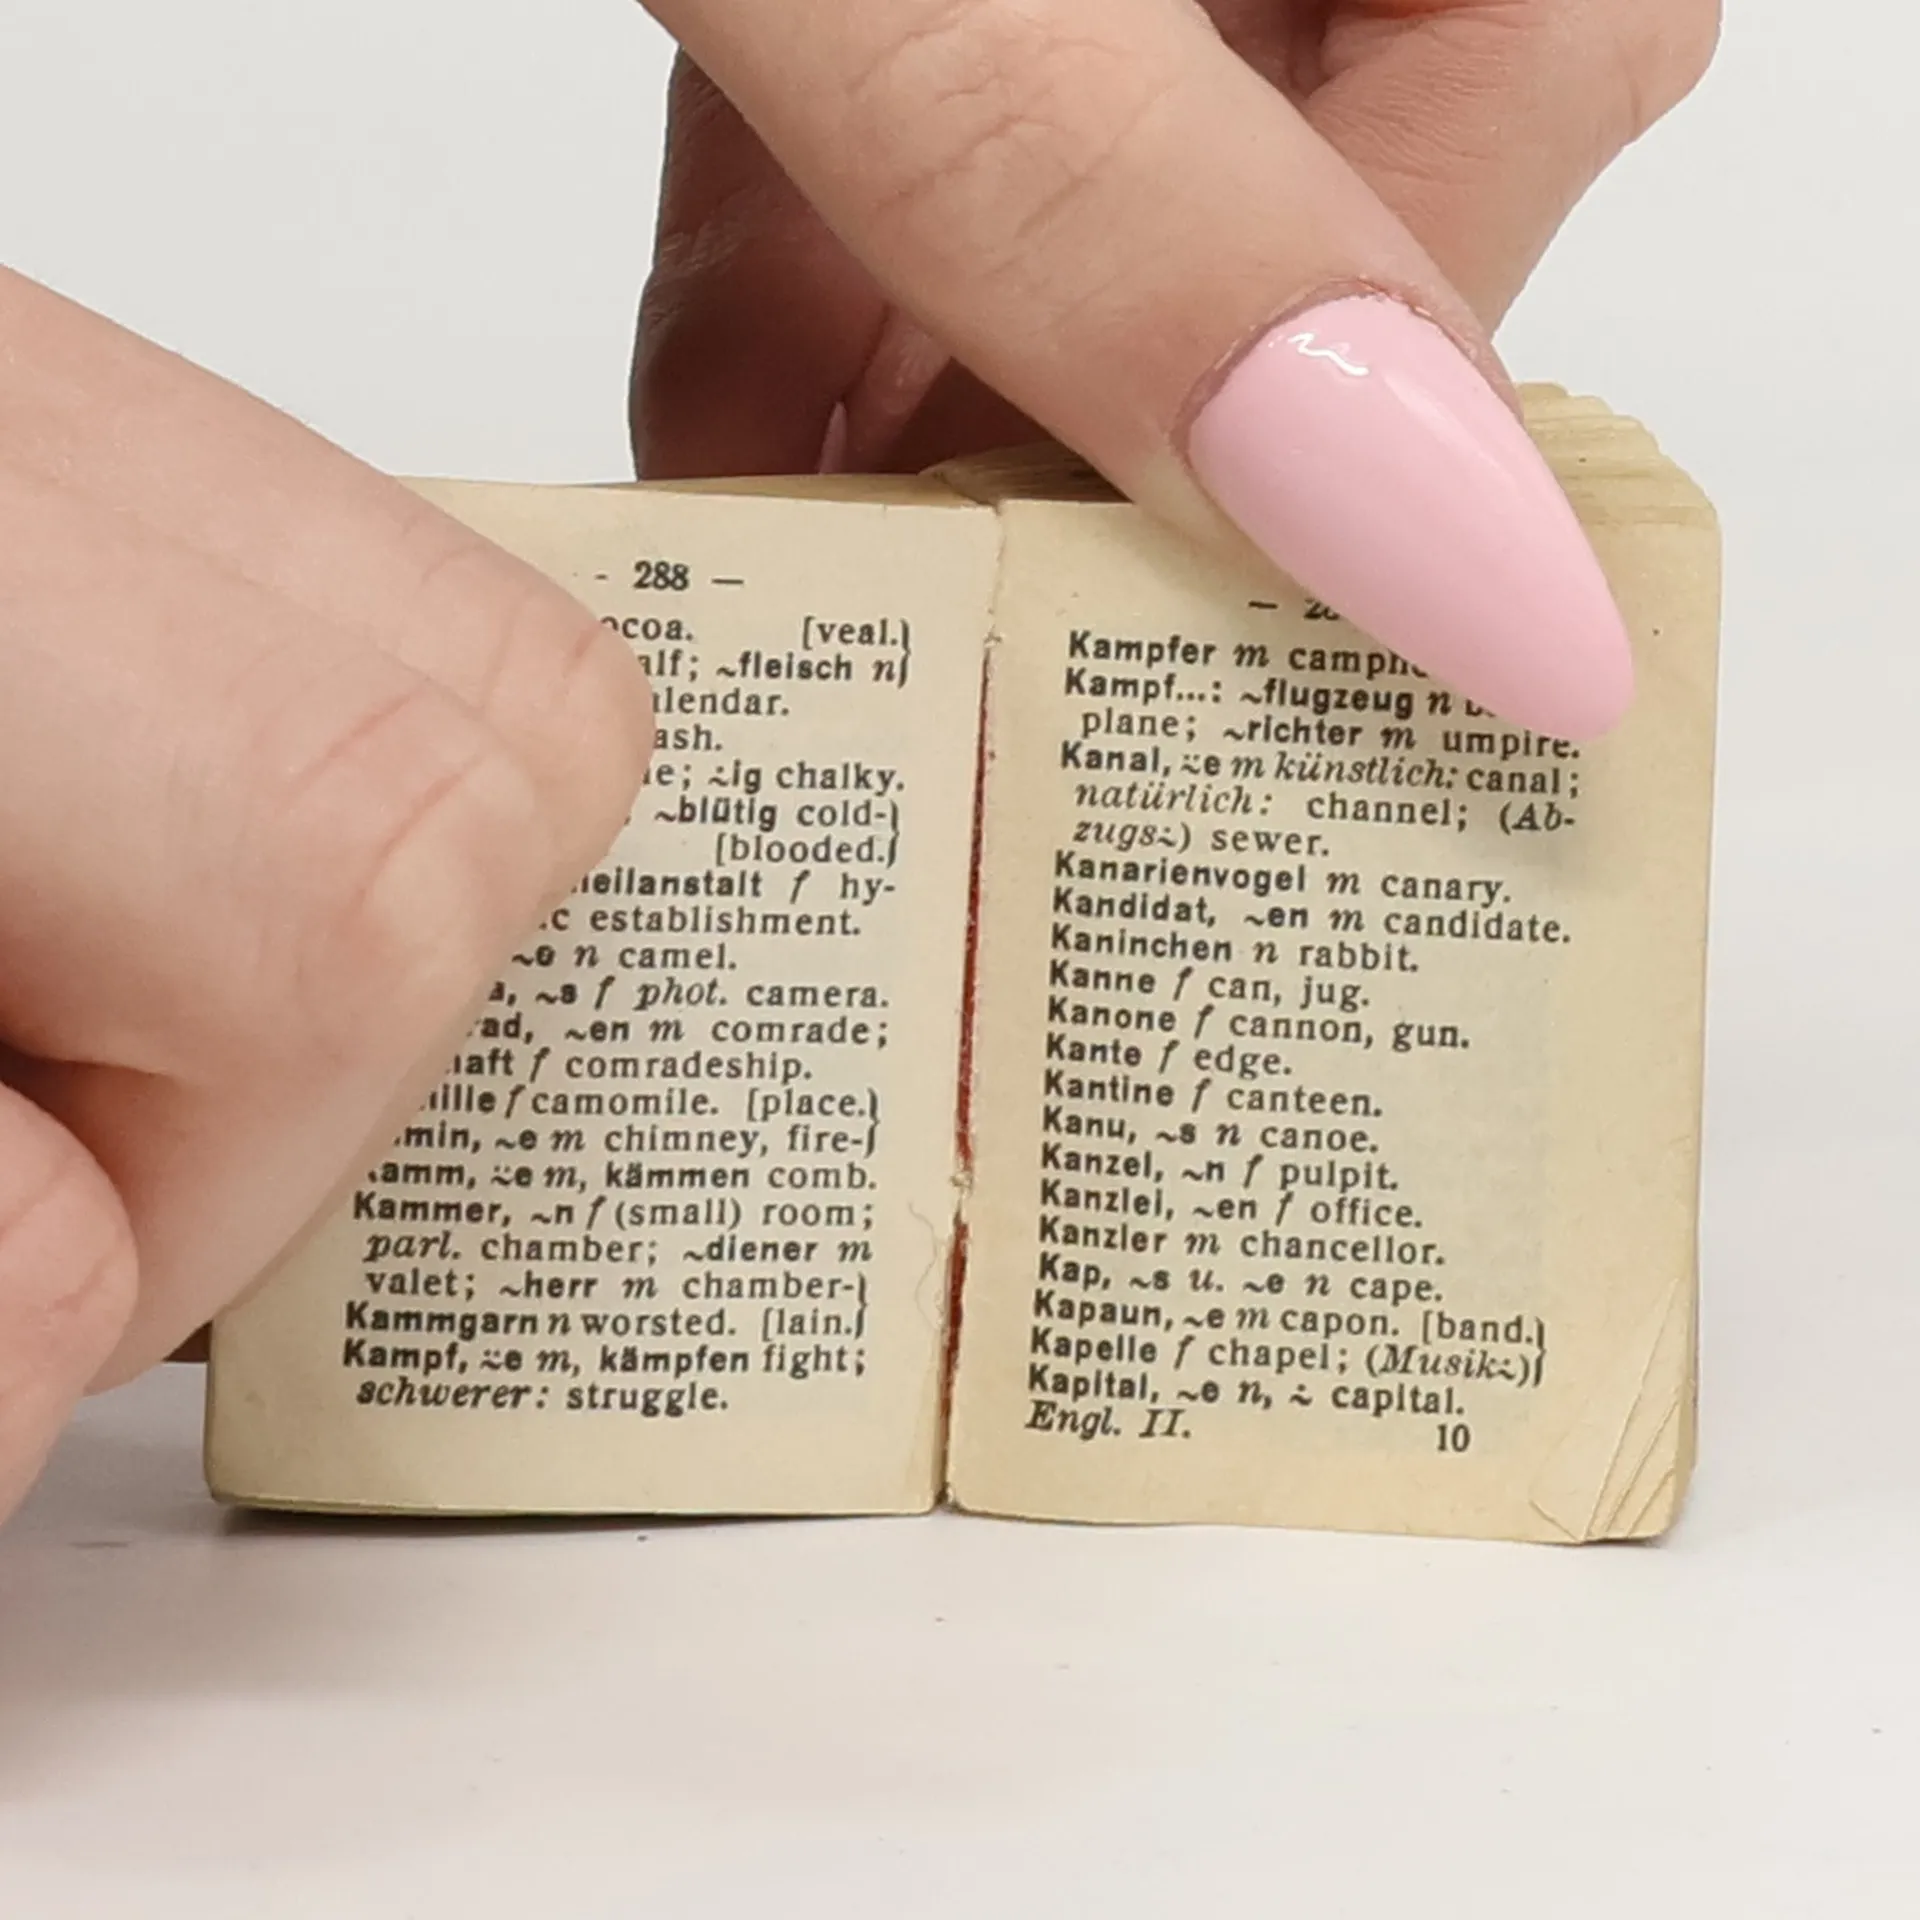 - 288 —
[veal.}
~fleisch n}
ash.
⸚ig chalky.
~blütig cold-}
[blooded.}
f hy-
establishment.
~e n camel.
~s f phot. camera.
~en m comrade;
f comradeship.
f camomile. [place.}
~e m chimney, fire-}
⸚e m, kämmen comb.
Kammer, ~n f (small) room;
parl. chamber; ~diener m
valet; ~herr m chamber-}
Kammgarn n worsted. [lain.}
Kampf, ⸚e m, kämpfen fight;
schwerer: struggle.
Kampfer m
Kampf...: ~flugzeug n
plane; ~richter m umpire.
Kanal, ⸚e m künstlich: canal;
natürlich: channel; (Ab-
zugs⸗) sewer.
Kanarienvogel m canary.
Kandidat, ~en m candidate.
Kaninchen n rabbit.
Kanne f can, jug.
Kanone f cannon, gun.
Kante f edge.
Kantine f canteen.
Kanu, ~s n canoe.
Kanzel, ~n f pulpit.
Kanzlei, ~en f office.
Kanzler m chancellor.
Kap, ~s u. ~e n cape.
Kapaun, ~e m capon. [band.}
Kapelle f chapel; (Musik⸗)}
Kapital, ~e n, ⸗ capital.
Engl. II. 10